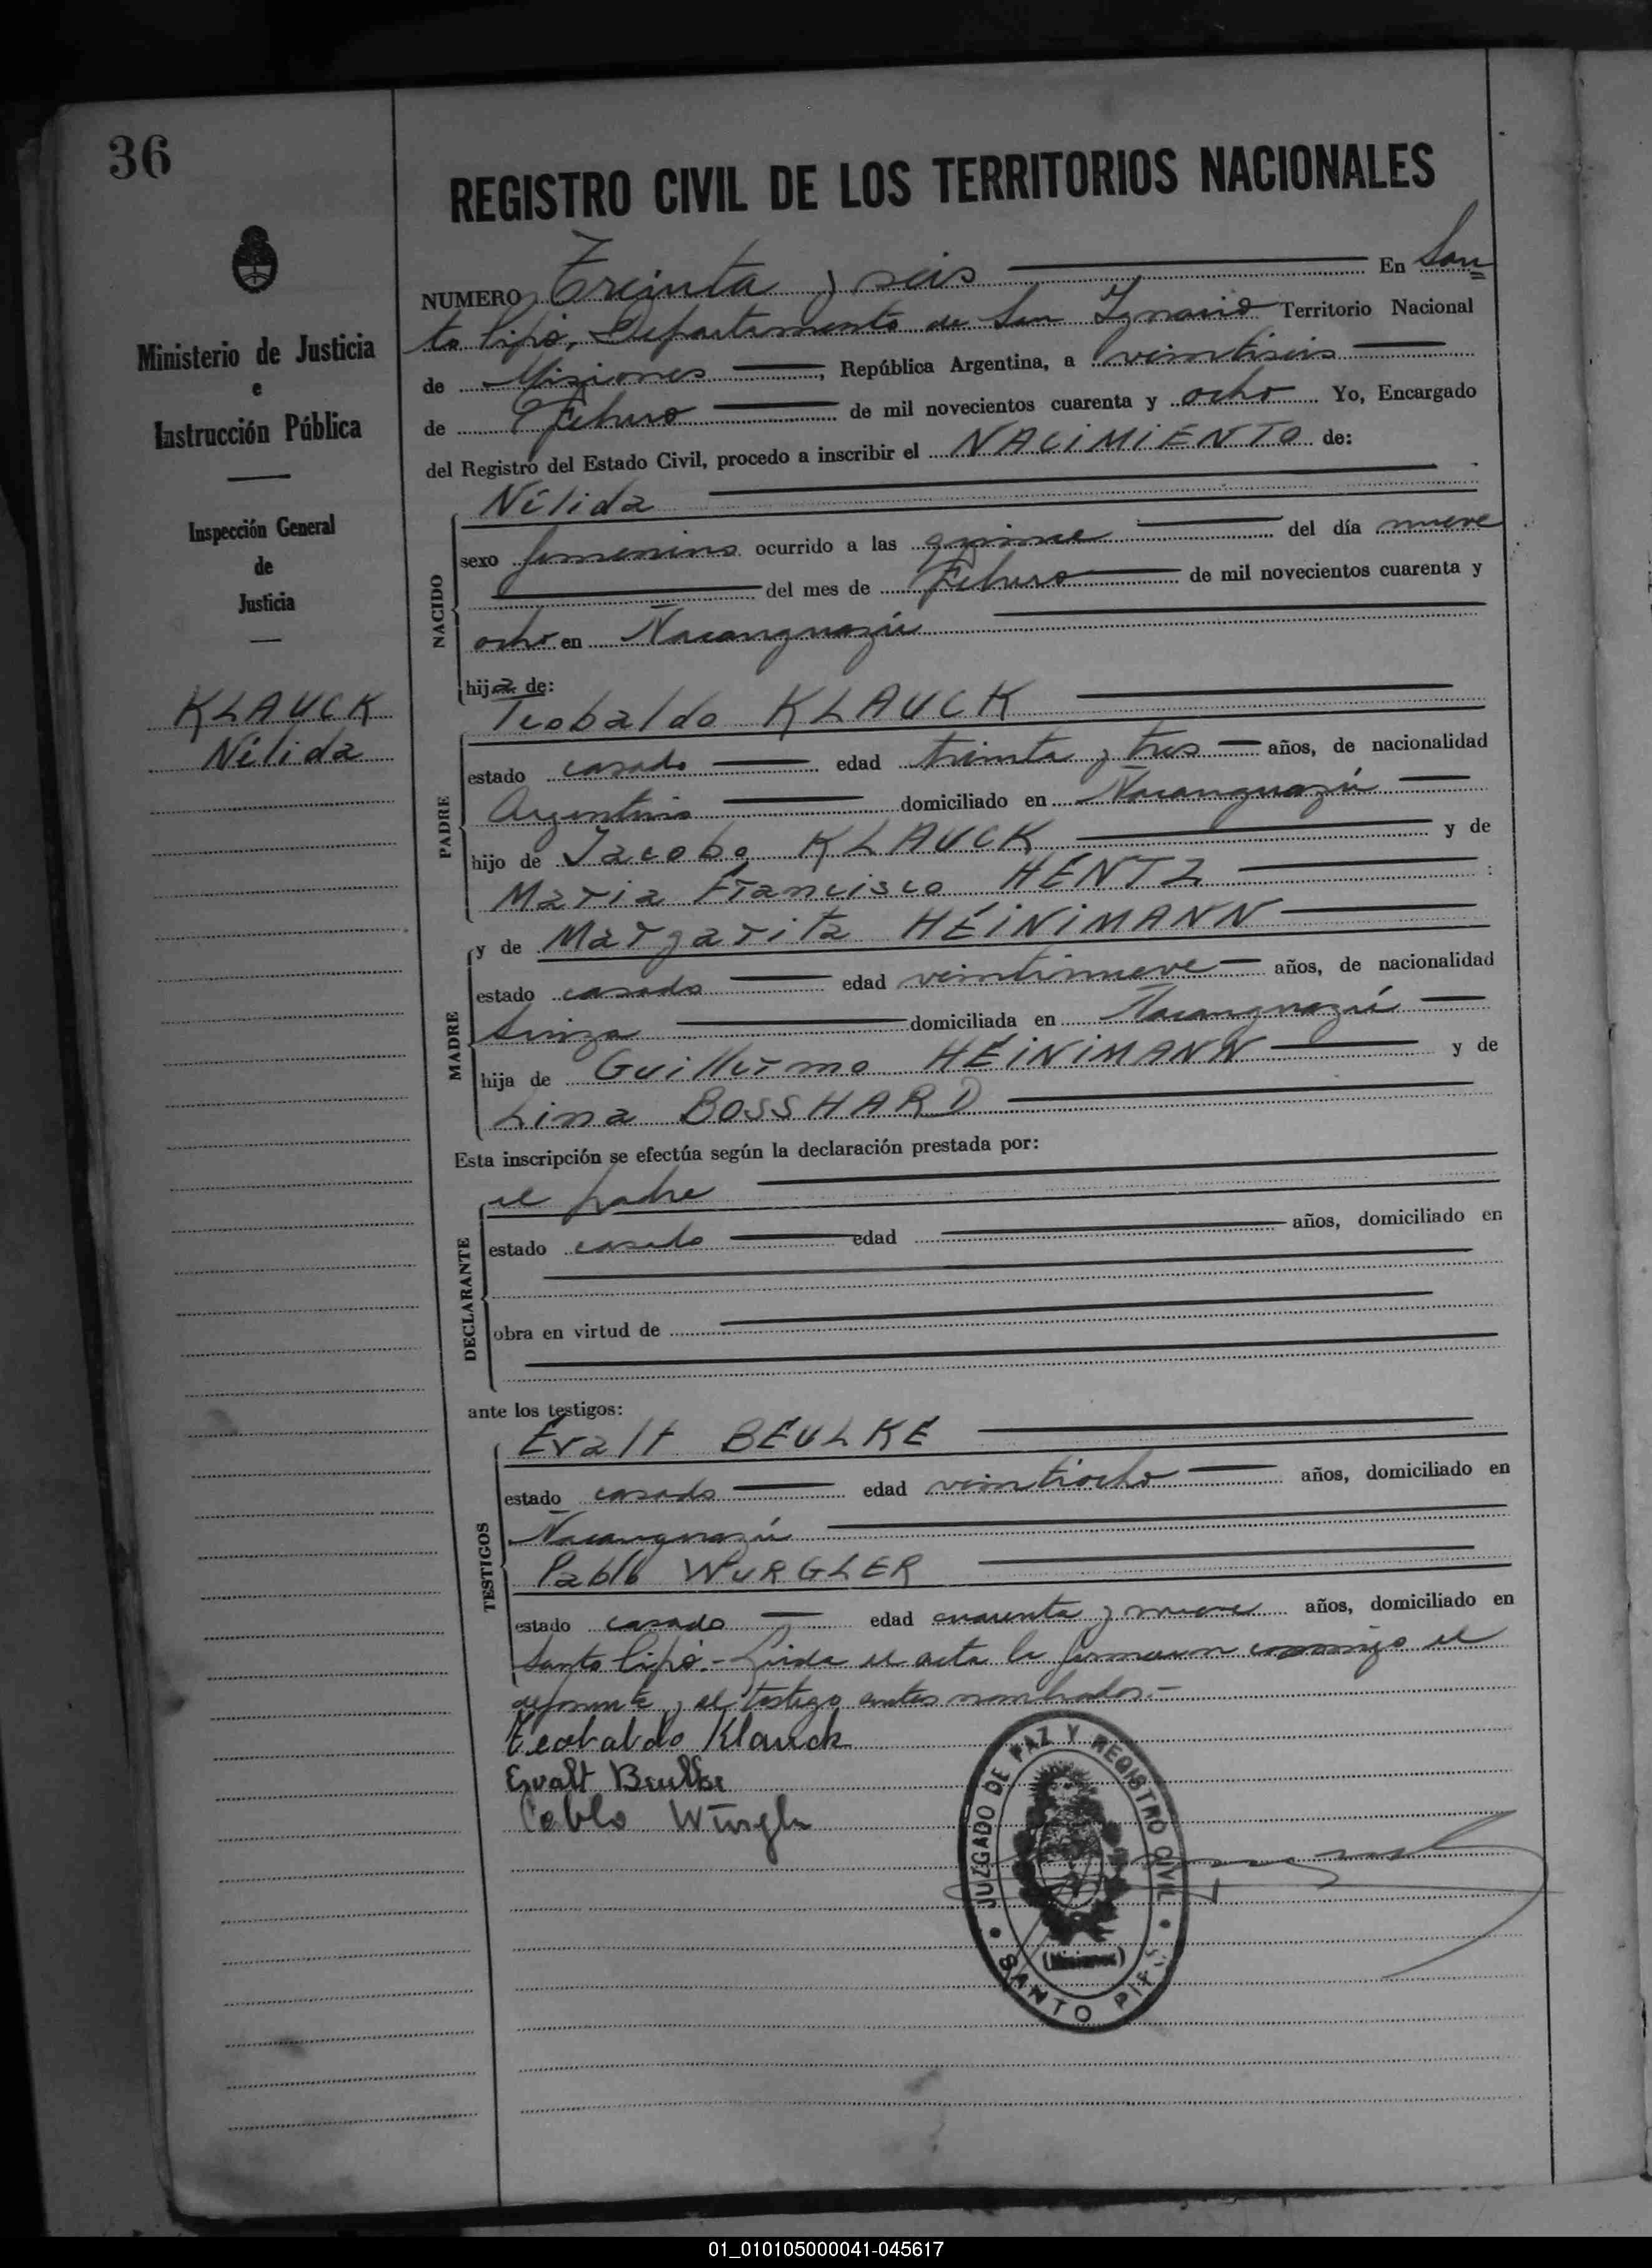 36
REGISTRO CIVIL DE LOS TERRITORIOS NACIONALES
NUMERO Treinta y seis En San
to Pipó, Departamento de San Ignacio Territorio Nacional
de Misiones, República Argentina, a veintiseis
de Febrero de mil novecientos cuarenta y ocho Yo, Encargado
del Registro del Estado Civil, procedo a inscribir el NACIMIENTO de:
Ministerio de Justicia
e
Instrucción Pública
Inspección General
de
Justicia
KLAUCK
Nélida
NACIDO
Nélida
sexo femenino ocurrido a las quince del día nueve
del mes de Febrero de mil novecientos cuarenta y
ocho en Ñacanguazú
hija de:
PADRE
Teobaldo KLAUCK
estado casado edad treinta y tres años, de nacionalidad
Argentino domiciliado en Ñacanguazú
hijo de Jacobo KLAUCK y de
Maria Francisca HENTZ
MADRE
y de Margarita HEINIMANN
estado casada edad veintinueve años, de nacionalidad
Suiza domiciliada en Ñacanguazú
hija de Guillermo HEINIMANN y de
Lina BOSSHARD
Esta inscripción se efectúa según la declaración prestada por:
DECLARANTE
el padre
estado casado edad años, domiciliado en
obra en virtud de
ante los testigos:
TESTIGOS
Evalt BEULKE
estado casado edad veintiocho años, domiciliado en
Ñacanguazú
Pablo WURGLER
estado casado edad cuarenta y nueve años, domiciliado en
Santo Pipó.- Leida el acta la firmaron conmigo el
deponente y el testigo antes nombrados.-
Teobaldo Klauck
Evalt Beulke
Pablo Würgler
JUZGADO DE PAZ Y REGISTRO CIVIL
(Misiones)
SANTO PIPÓ
01_010105000041-045617